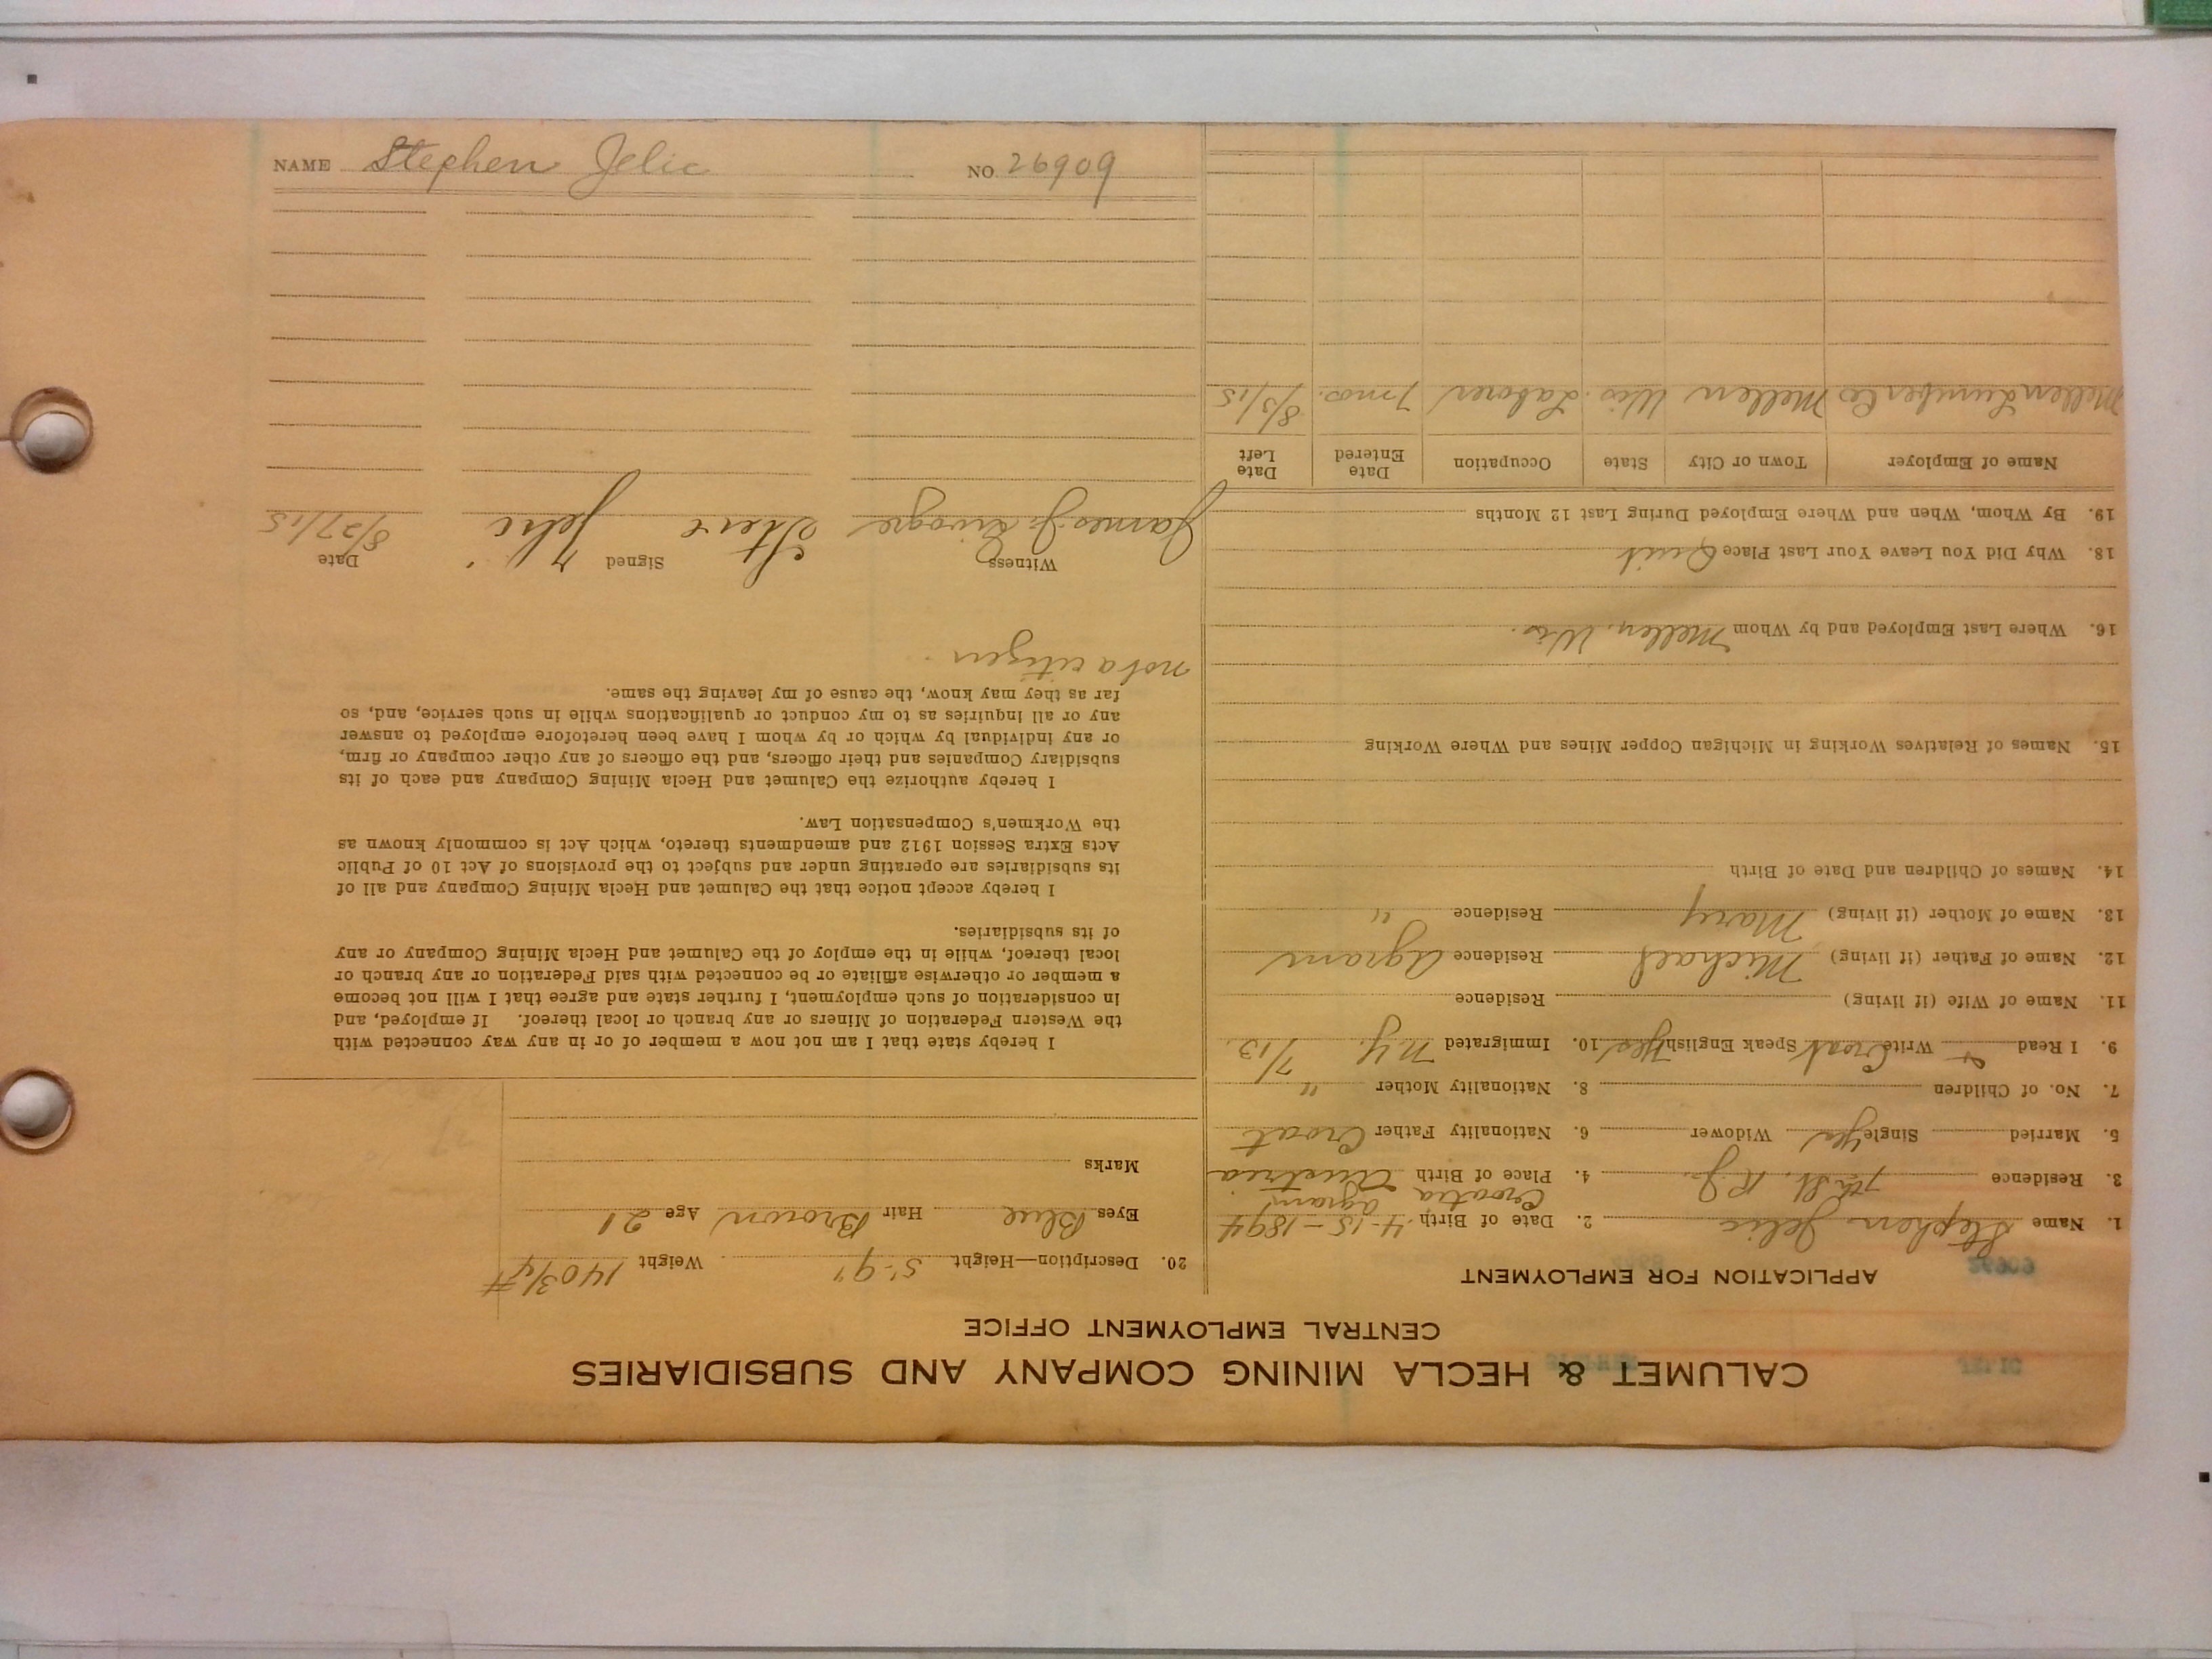 NAME Stephen Jelic NO. 26909
CALUMET & HECLA MINING COMPANY AND SUBSIDIARIES
CENTRAL EMPLOYMENT OFFICE
APPLICATION FOR EMPLOYMENT
1. Name Stephen Jelic 2. Date of Birth 4-15-1894
3. Residence 7th St. R.J. 4. Place of Birth Croatia Agram Austria
5. Married Single Yes Widower 6. Nationality Father Croat
7. No. of Children 8. Nationality Mother "
9. I Read Write Croat Speak English Yes 10. Immigrated N.Y. 7/13.
11. Name of Wife (if living) Residence
12. Name of Father (if living) Michael Residence Agram
13. Name of Mother (if living) Mary Residence "
14. Names of Children and Date of Birth
15. Names of Relatives Working in Michigan Copper Mines and Where Working
16. Where Last Employed and by Whom Mellen, Wis.
18. Why Did You Leave Your Last Place Quit
19. By Whom, When and Where Employed During Last 12 Months
Name of Employer Town or City State Occupation Date Entered Date Left
Mellen Lumber Co Mellen Wis. Laborer 7 mos. 8/5/15
20. Description—Height 5'-9" Weight 140 3/4 #
Eyes Blue Hair Brown Age 21
Marks
I hereby state that I am not now a member of or in any way connected with
the Western Federation of Miners or any branch or local thereof. If employed, and
in consideration of such employment, I further state and agree that I will not become
a member or otherwise affiliate or be connected with said Federation or any branch or
local thereof, while in the employ of the Calumet and Hecla Mining Company or any
of its subsidiaries.
I hereby accept notice that the Calumet and Hecla Mining Company and all of
its subsidiaries are operating under and subject to the provisions of Act 10 of Public
Acts Extra Session 1912 and amendments thereto, which Act is commonly known as
the Workmen's Compensation Law.
I hereby authorize the Calumet and Hecla Mining Company and each of its
subsidiary Companies and their officers, and the officers of any other company or firm,
or any individual by which or by whom I have been heretofore employed to answer
any or all inquiries as to my conduct or qualifications while in such service, and, so
far as they may know, the cause of my leaving the same.
not a citizen.
Witness Signed Date
James J. Steve Jelic 8/27/15